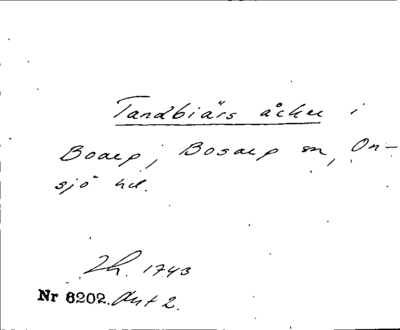 Tandbiärs åcker i
Boarp, Bosarp sn, On-
sjö hd.
Lh. 1743
Nr 6202. Avt 2.